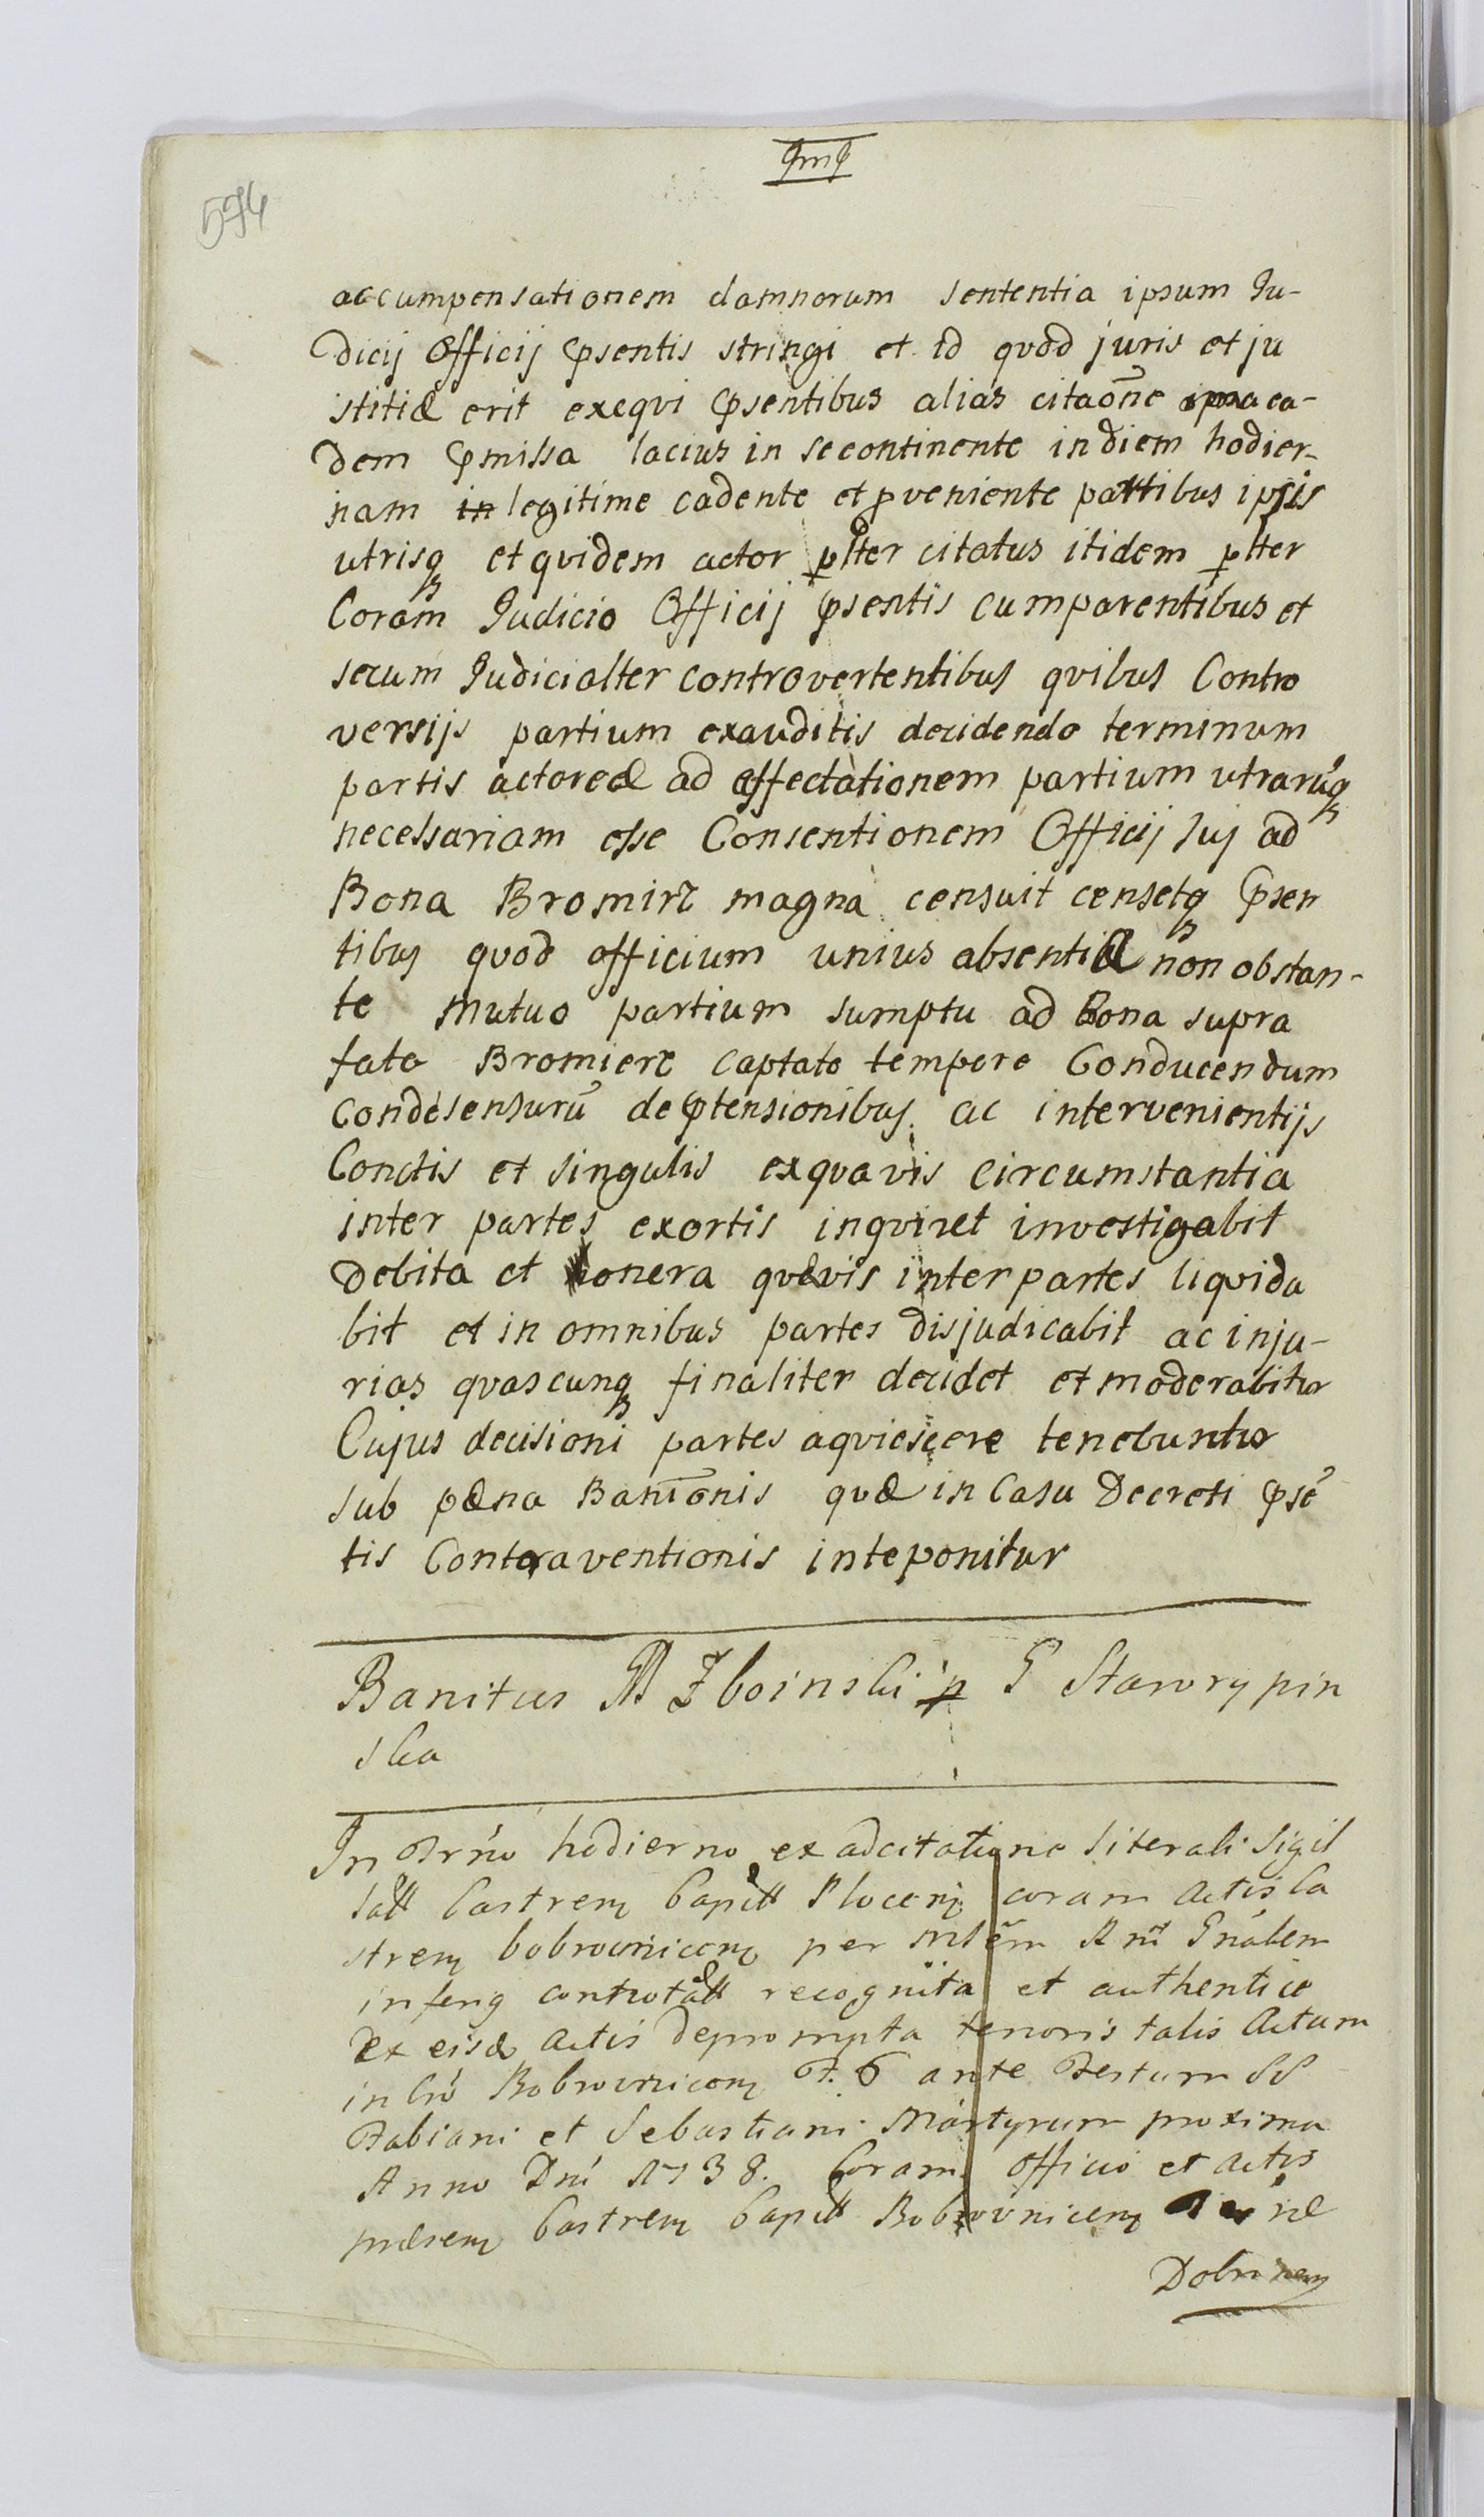 594
accumpensationem damnorum sententia ipsum Ju-
dicij Officij Psentis stringi et id quod juris et ju
stitiæ erit exequi Psentibus alias citaōne ea-
dem Pmissa lacius in secontinente in diem hodier-
nam in legitime cadente et pveniente partibus ipsis
utrisq et quidem actor plter citatus itidem plter
Coram Judicio Officij Psentis cumparentibus et
secum Judicialter controvertentibus quibus Contro
versijs partium exauditis decidendo terminum
partis actoreæ ad affectationem partium utrarūq
necessariam esse Consentionem Officij suj ad
Bona Bromirz magna censuit censetq Psen
tibus quod officium unius absentiæ non obstan-
te mutuo partium sumptu ad Bona supra
fata Bromierz captato tempore Conducendum
Condesensurū de Ptensionibus ac intervenientijs
Conctis et singulis exquavis circumstantia
inter partes exortis inquiret investigabit
debita et onera quævis inter partes liquida
bit et in omnibus partes disjudicabit ac inju-
rias quascunq finaliter decidet et moderabitur
Cujus decisioni partes aquiescere tenebuntur
sub pæna Baniōnis quæ in Casu Decreti Psē
tis Contraventionis inteponitur
Banitus M Zboinski p G Starorypin
ska
In Trńo hodierno ex adcitatione literali Sigil
latt Castren Capitt Plocen coram Actis Ca
stren bobrownicen per Gnãlem
infeng controtatt recognita et authentice
ex eisd actis deprompta tenoris talis Actum
in Cró Bobrownicen F. 6 ante Festum SS
Fabiani et Sebastiani Martyrum proxima
Anno Dni 1738. Coram officio et actis
præsen Castren Capitt Bobrownicen
Dobrinen